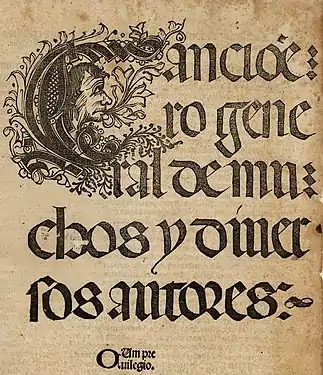 Cancioẽ:
ro gene
ral de mu:
chos y diuer
sos autores:~
Cum pre
uilegio.